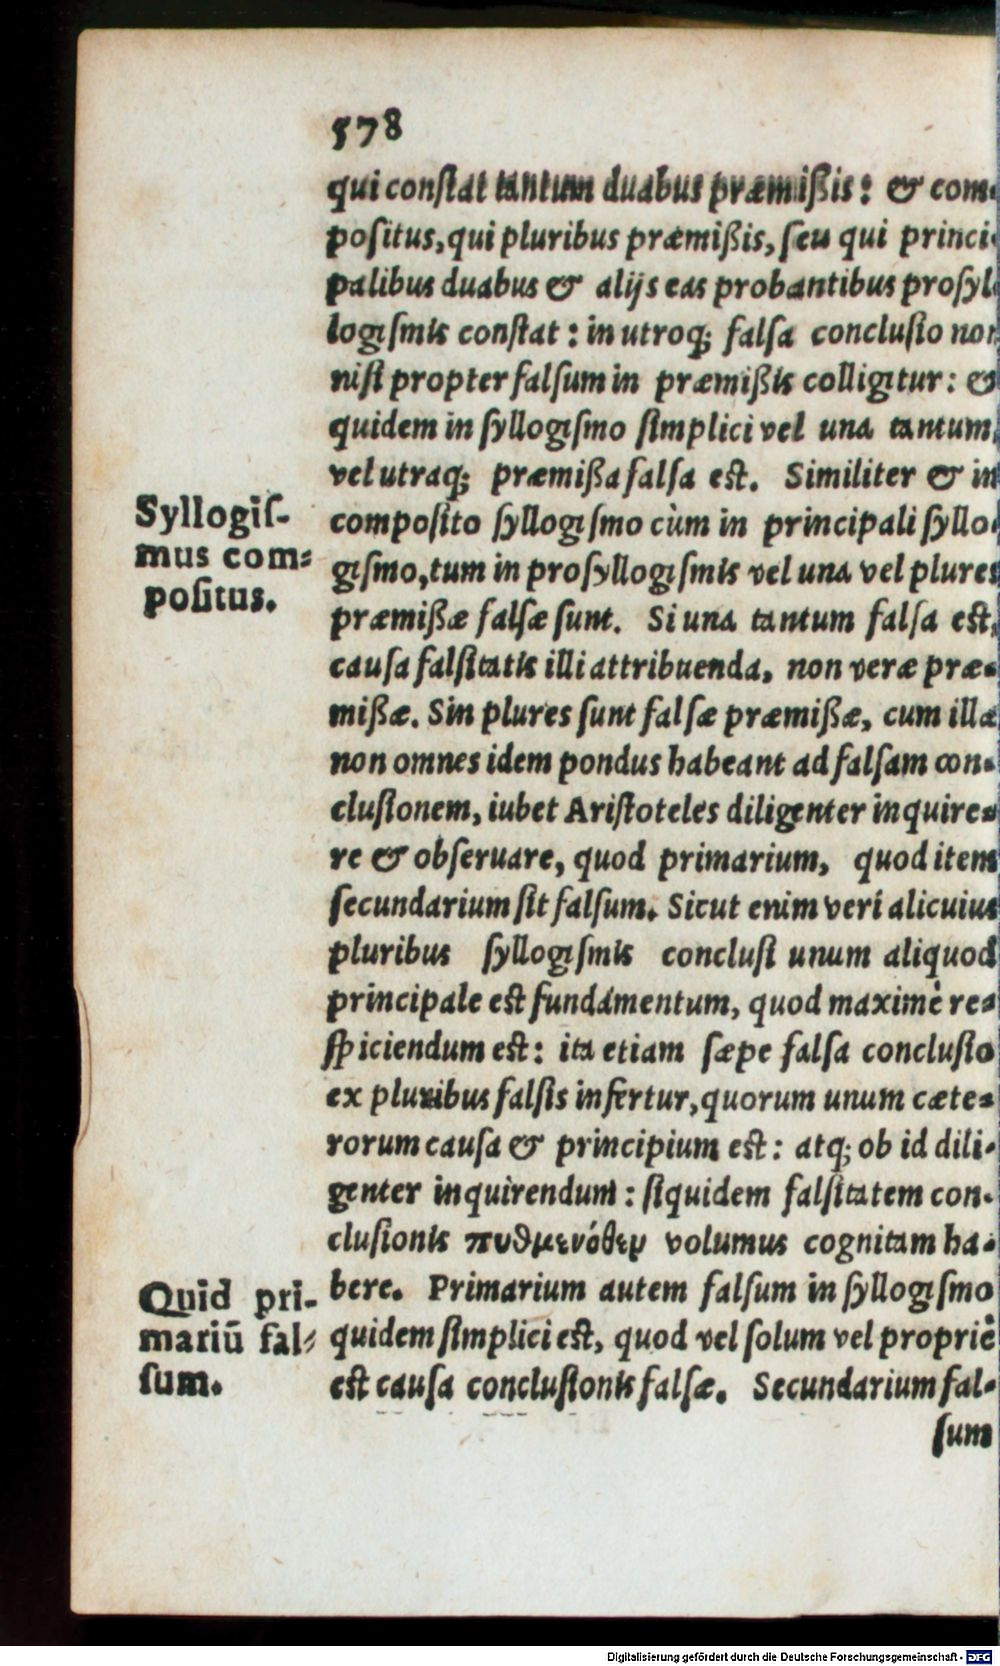 578
qui constat tantum duabus præmißis: & com-
positus, qui pluribus præmißis, seu qui princi-
palibus duabus & alijs eas probantibus prosyl-
logismis constat: in utroq; falsa conclusio non
nisi propter falsum in præmißis colligitur: &
quidem in syllogismo simplici vel una tantum,
vel utraq; præmißa falsa est. Similiter & in
Syllogis-
mus com-
positus.
composito syllogismo cùm in principali syllo-
gismo, tum in prosyllogismis vel una vel plures
præmißæ falsæ sunt. Si una tantum falsa est,
causa falsitatis illi attribuenda, non veræ præ-
mißæ. Sin plures sunt falsæ præmißæ, cum illæ
non omnes idem pondus habeant ad falsam con-
clusionem, iubet Aristoteles diligenter inquire-
re & obseruare, quod primarium, quod item
secundarium sit falsum. Sicut enim veri alicuius
pluribus syllogismis conclusi unum aliquod
principale est fundamentum, quod maximè re-
spiciendum est: ita etiam sæpe falsa conclusio
ex pluribus falsis infertur, quorum unum cæte-
rorum causa & principium est: atq; ob id dili-
genter inquirendum: siquidem falsitatem con-
clusionis πυθμενόθεν volumus cognitam ha-
Quid pri-
mariũ fal-
sum.
bere. Primarium autem falsum in syllogismo
quidem simplici est, quod vel solum vel propriè
est causa conclusionis falsæ. Secundarium fal-
sum
Digitalisierung gefördert durch die Deutsche Forschungsgemeinschaft - DFG